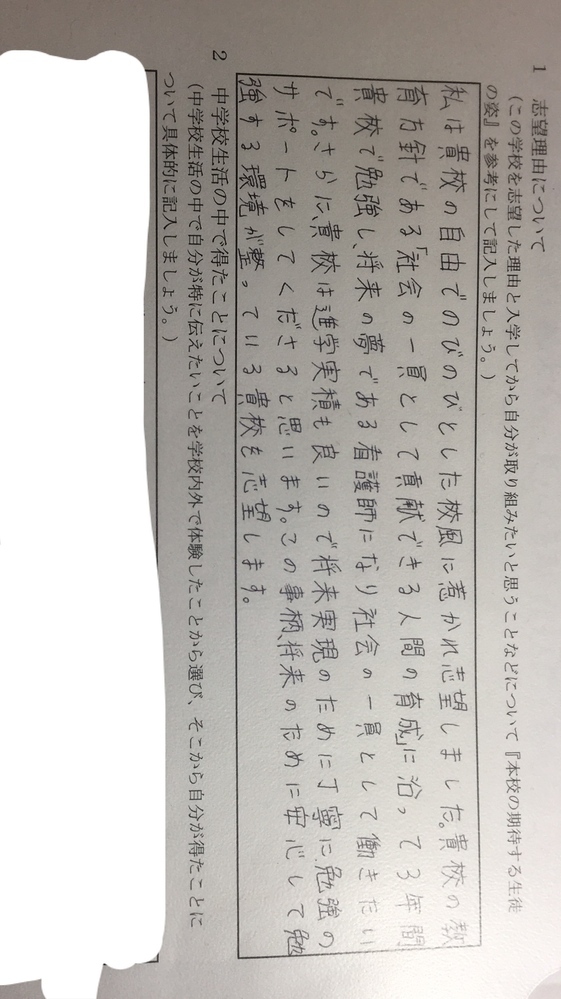 1 志望理由について
(この学校を志望した理由と入学してから自分が取り組みたいと思うことなどについて『本校の期待する生徒
の姿』を参考にして記入しましょう。)
私は貴校の自由でのびのびとした校風に惹かれ志望しました。貴校の教
育方針である「社会の一員として貢献できる人間の育成」に沿って3年間
貴校で勉強し、将来の夢である看護師になり社会の一員として働きたい
です。さらに、貴校は進学実積も良いので将来実現のために丁寧に勉強の
サポートをしてくださると思います。この事柄、将来のために安心して勉
強する環境が整っている貴校を志望します。
2 中学校生活の中で得たことについて
(中学校生活の中で自分が特に伝えたいことを学校内外で体験したことから選び、そこから自分が得たことに
ついて具体的に記入しましょう。)